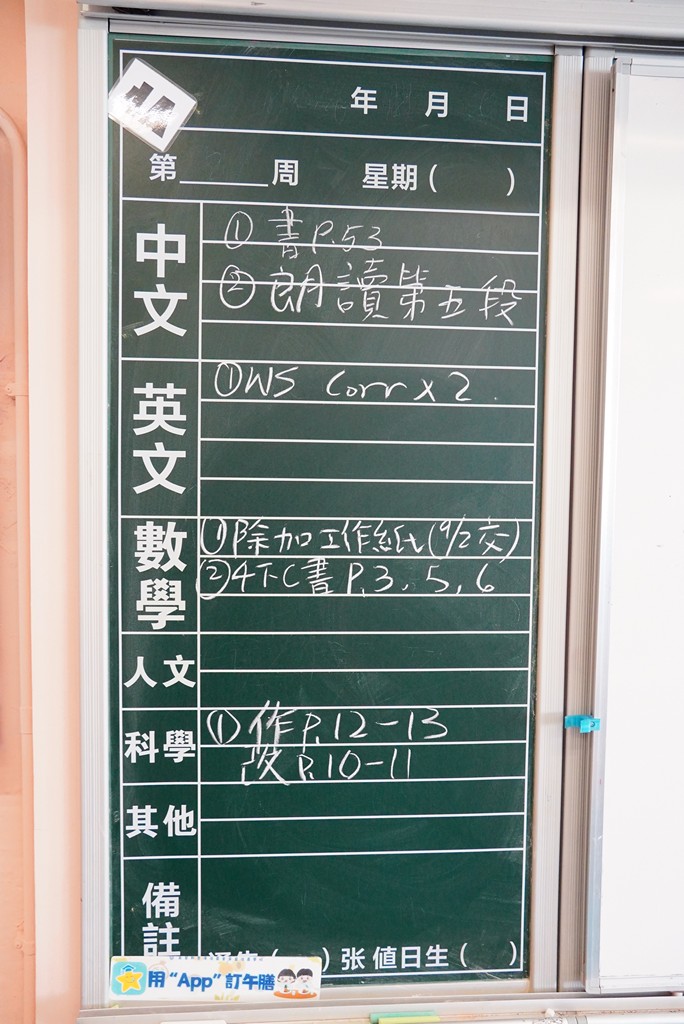 4A
年 月 日
第______周 星期( )
中文
① 書P.53
② 朗讀第五段
英文
① WS Corr x 2.
數學
① 除加工作紙(9/2交)
② 4下C書P.3, 5, 6
人文
科學
① 作P.12-13
改P.10-11
其他
備註
通告( )张 值日生( )
用“App”訂午膳